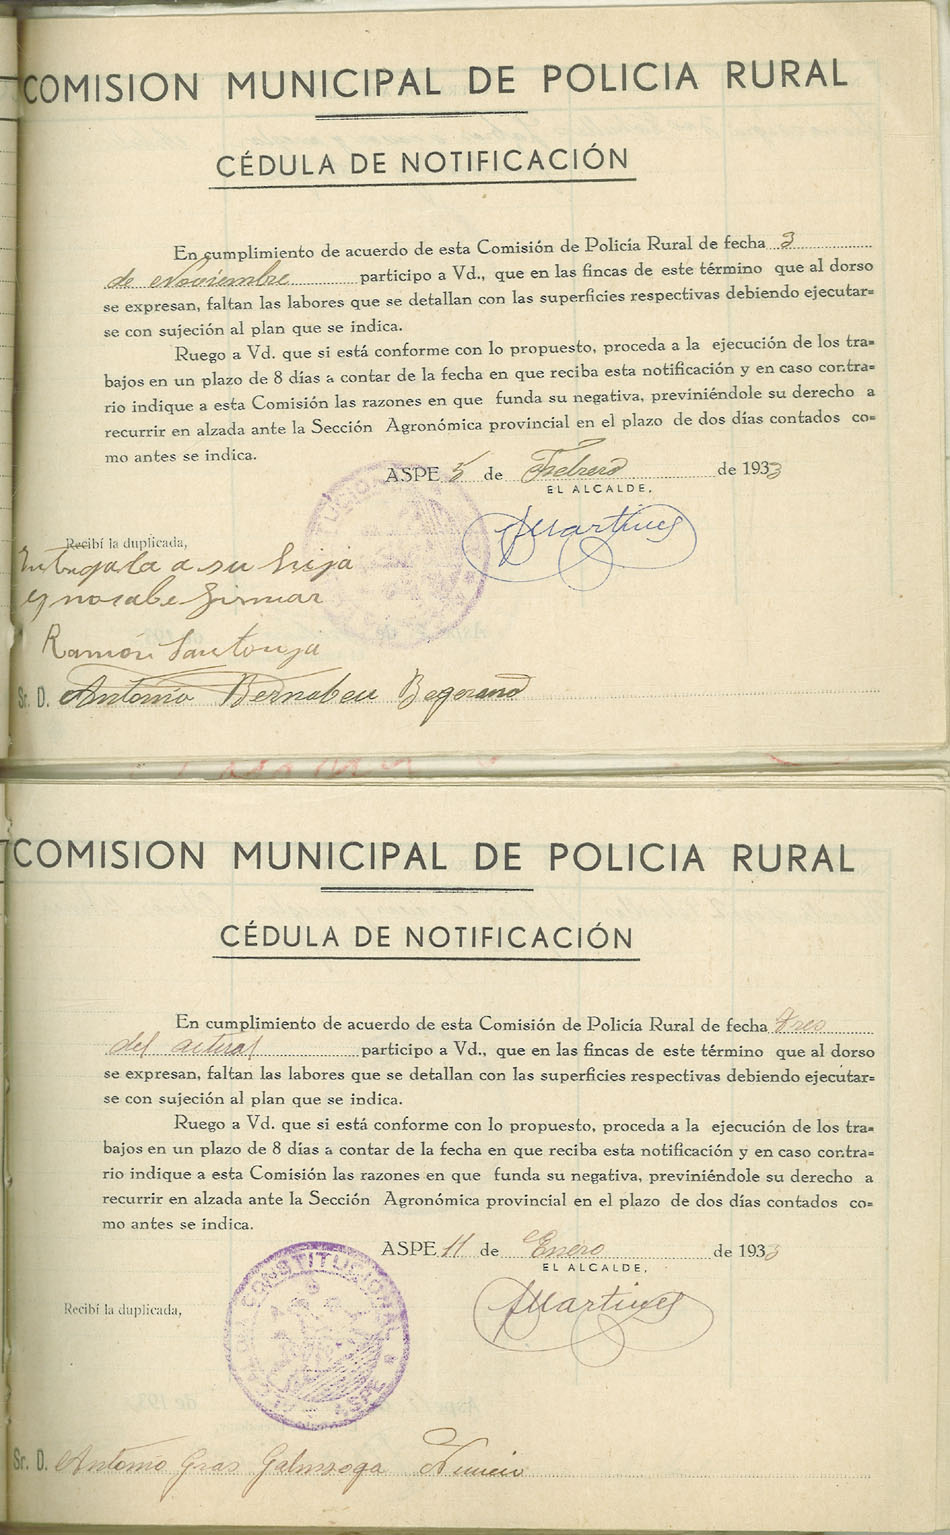 COMISION MUNICIPAL DE POLICIA RURAL
CÉDULA DE NOTIFICACIÓN
En cumplimiento de acuerdo de esta Comisión de Policía Rural de fecha 3
de Noviembre participo a Vd., que en las fincas de este término que al dorso
se expresan, faltan las labores que se detallan con las superficies respectivas debiendo ejecutar=
se con sujeción al plan que se indica.
Ruego a Vd. que si está conforme con lo propuesto, proceda a la ejecución de los tra=
bajos en un plazo de 8 días a contar de la fecha en que reciba esta notificación y en caso contra=
rio indique a esta Comisión las razones en que funda su negativa, previniéndole su derecho a
recurrir en alzada ante la Sección Agronómica provincial en el plazo de dos días contados co=
mo antes se indica.
ASPE 5 de Febrero de 1933
EL ALCALDE,
AMartinez
Recibí la duplicada,
Entregada a su hija
y no sabe firmar
Ramón Santonja
Sr. D. Antonio Bernabeu
COMISION MUNICIPAL DE POLICIA RURAL
CÉDULA DE NOTIFICACIÓN
En cumplimiento de acuerdo de esta Comisión de Policía Rural de fecha tres
del actual participo a Vd., que en las fincas de este término que al dorso
se expresan, faltan las labores que se detallan con las superficies respectivas debiendo ejecutar=
se con sujeción al plan que se indica.
Ruego a Vd. que si está conforme con lo propuesto, proceda a la ejecución de los tra=
bajos en un plazo de 8 días a contar de la fecha en que reciba esta notificación y en caso contra=
rio indique a esta Comisión las razones en que funda su negativa, previniéndole su derecho a
recurrir en alzada ante la Sección Agronómica provincial en el plazo de dos días contados co=
mo antes se indica.
ASPE 11 de Enero de 1933
EL ALCALDE,
AMartinez
Recibí la duplicada,
ALCALDIA CONSTITUCIONAL * ASPE *
Sr. D. Antonio Gras Galinsoga